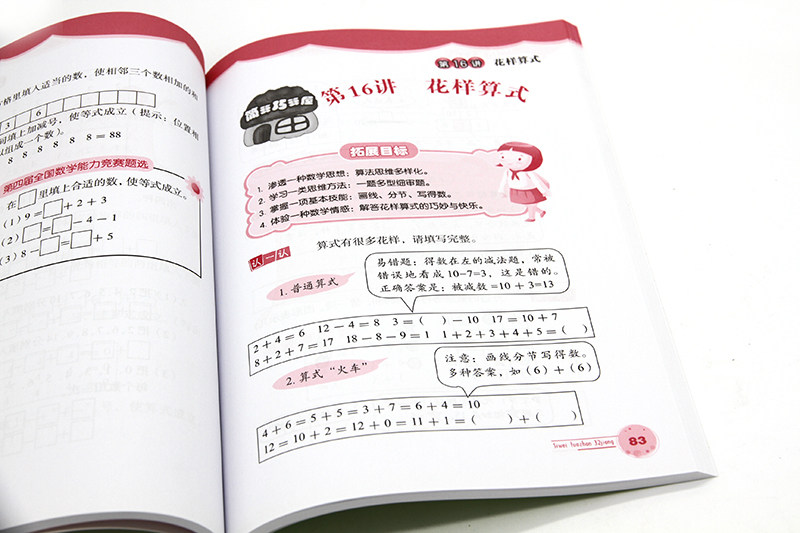 格里填入适当的数，使相邻三个数相加的和
3 6
间填上加减号，使等式成立（提示：位置相
以组成一个数）。
8 8 8 8 8 8 = 88
第四届全国数学能力竞赛题选
在□里填上合适的数，使等式成立。
(1) 9 = □ + 2 + 3
(2) □ = □ - 4 - 1
(3) 8 - □ = □ + 5
第16讲 花样算式
第16讲 花样算式
拓展目标
1. 渗透一种数学思想：算法思维多样化。
2. 学习一类思维方法：一题多型细审题。
3. 掌握一项基本技能：画线、分节、写得数。
4. 体验一种数学情感：解答花样算式的巧妙与快乐。
认一认
算式有很多花样，请填写完整。
1. 普通算式
易错题：得数在左的减法题，常被
错误地看成10-7=3，这是错的。
正确答案是：被减数=10+3=13
2+4=6 12-4=8 3=( )-10 17=10+7
8+2+7=17 18-8-9=1 1+2+3+4+5=( )
2. 算式“火车”
注意：画线分节写得数。
多种答案，如(6)+(6)
4+6=5+5=3+7=6+4=10
12=10+2=12+0=11+1=( )+( )
83